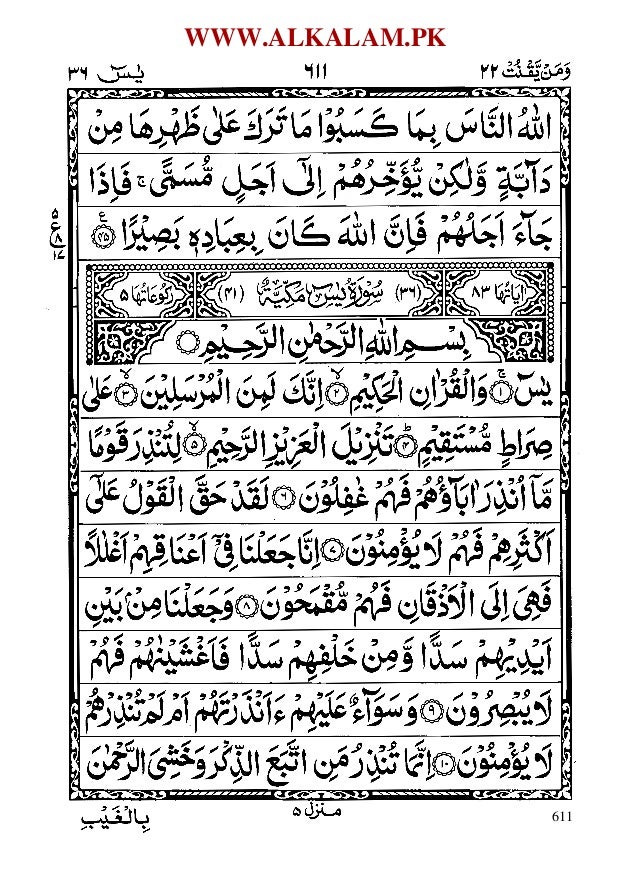 WWW.ALKALAM.PK
وَمَنْ يَّقْنُتْ ۲۲
۶۱۱
يٰسٓ ۳۶
اللّٰهُ النَّاسَ بِمَا كَسَبُوْا مَا تَرَكَ عَلٰى ظَهْرِهَا مِنْ
دَآبَّةٍ وَّلٰكِنْ يُّؤَخِّرُهُمْ اِلٰٓى اَجَلٍ مُّسَمًّى ۚ فَاِذَا
جَآءَ اَجَلُهُمْ فَاِنَّ اللّٰهَ كَانَ بِعِبَادِهٖ بَصِيْرًا ۝۴۵
۵ ع ۸ ۱۷
اٰيَاتُهَا ۸۳ (۳۶) سُوْرَةُ يٰسٓ مَكِّيَّةٌ (۴۱) رُكُوْعَاتُهَا ۵
بِسْمِ اللّٰهِ الرَّحْمٰنِ الرَّحِيْمِ ۝
يٰسٓ ۚ۝۱ وَالْقُرْاٰنِ الْحَكِيْمِ ۙ۝۲ اِنَّكَ لَمِنَ الْمُرْسَلِيْنَ ۙ۝۳ عَلٰى
صِرَاطٍ مُّسْتَقِيْمٍ ؕ۝۴ تَنْزِيْلَ الْعَزِيْزِ الرَّحِيْمِ ۙ۝۵ لِتُنْذِرَ قَوْمًا
مَّآ اُنْذِرَ اٰبَآؤُهُمْ فَهُمْ غٰفِلُوْنَ ۝۶ لَقَدْ حَقَّ الْقَوْلُ عَلٰٓى
اَكْثَرِهِمْ فَهُمْ لَا يُؤْمِنُوْنَ ۝۷ اِنَّا جَعَلْنَا فِيْٓ اَعْنَاقِهِمْ اَغْلٰلًا
فَهِىَ اِلَى الْاَذْقَانِ فَهُمْ مُّقْمَحُوْنَ ۝۸ وَجَعَلْنَا مِنْۢ بَيْنِ
اَيْدِيْهِمْ سَدًّا وَّمِنْ خَلْفِهِمْ سَدًّا فَاَغْشَيْنٰهُمْ فَهُمْ
لَا يُبْصِرُوْنَ ۝۹ وَسَوَآءٌ عَلَيْهِمْ ءَاَنْذَرْتَهُمْ اَمْ لَمْ تُنْذِرْهُمْ
لَا يُؤْمِنُوْنَ ۝۱۰ اِنَّمَا تُنْذِرُ مَنِ اتَّبَعَ الذِّكْرَ وَخَشِىَ الرَّحْمٰنَ
منزل ۵
بِالْغَيْبِ
611